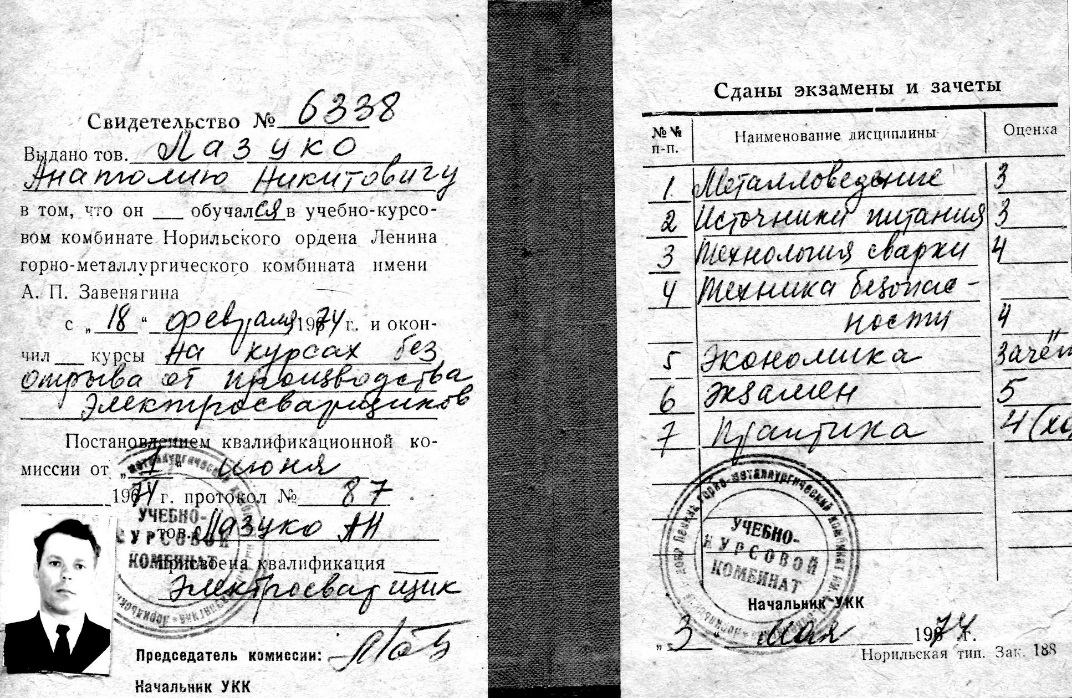 Свидетельство № 6338
Выдано тов. Лазуко
Анатолию Никитовичу
в том, что он обучался в учебно-курсо-
вом комбинате Норильского ордена Ленина
горно-металлургического комбината имени
А. П. Завенягина
с „18“ февраля 1974 г. и окон-
чил курсы на курсах без
отрыва от производства
Электросварщиков
Постановлением квалификационной ко-
миссии от „3“ июня
1974 г. протокол № 87
тов. Лазуко АН
присвоена квалификация
Электросварщик
Председатель комиссии:
Начальник УКК
УЧЕБНО-
КУРСОВОЙ
КОМБИНАТ
Сданы экзамены и зачеты
№ № п-п. Наименование дисциплины Оценка
1 Металловедение 3
2 Источники питания 3
3 Технология сварки 4
4 Техника безопас-
ности 4
5 Экономика зачёт
6 Экзамен 5
7 Практика 4
УЧЕБНО-
КУРСОВОЙ
КОМБИНАТ
Начальник УКК
„3“ мая 1974 г.
Норильская тип. Зак. 188